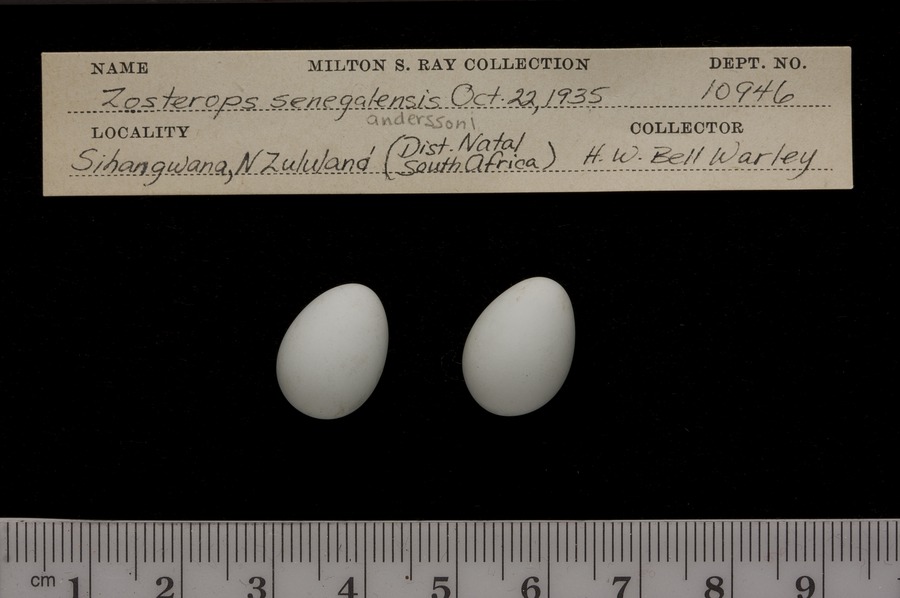 NAME MILTON S. RAY COLLECTION DEPT. NO.
Zosterops senegalensis Oct. 22, 1935 10946
anderssoni
LOCALITY COLLECTOR
Sihangwana, N Zululand (Dist. Natal South Africa) H. W. Bell Warley
cm 1 2 3 4 5 6 7 8 9